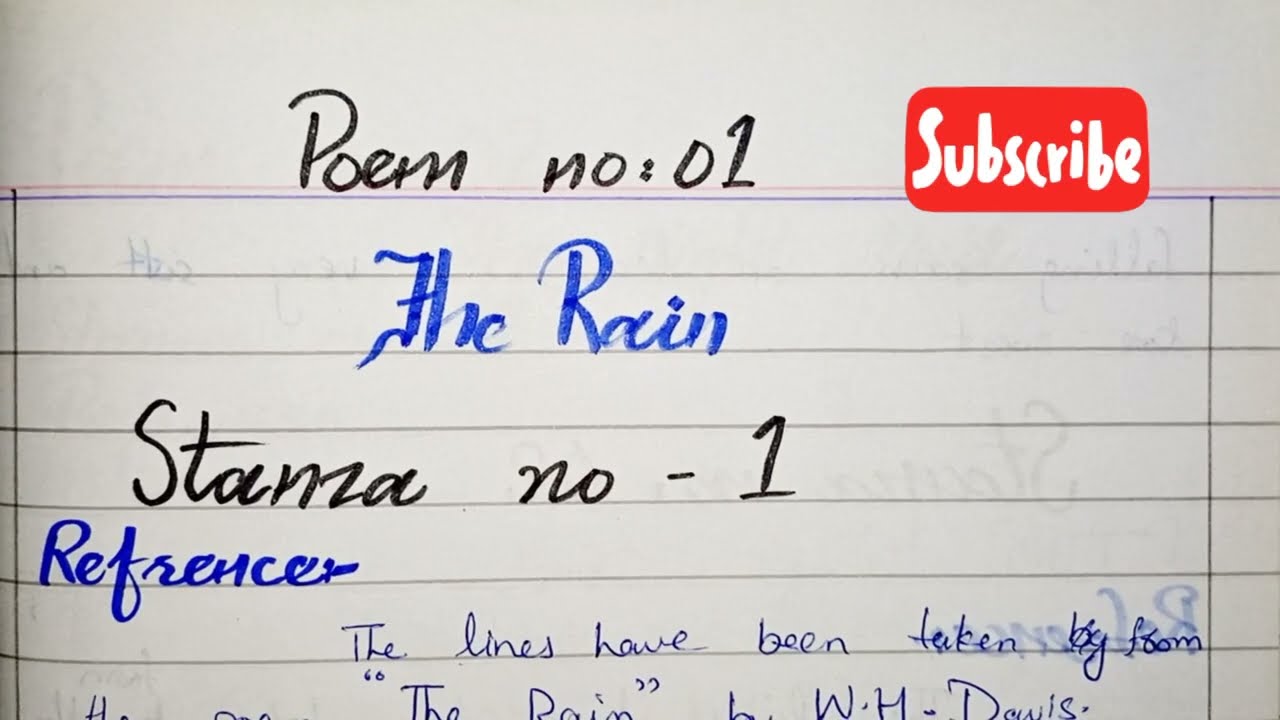 Poem no: 01
Subscribe
The Rain
Stanza no - 1
Refrence:-
The lines have been taken from
the poem "The Rain" by W.H. Davis.